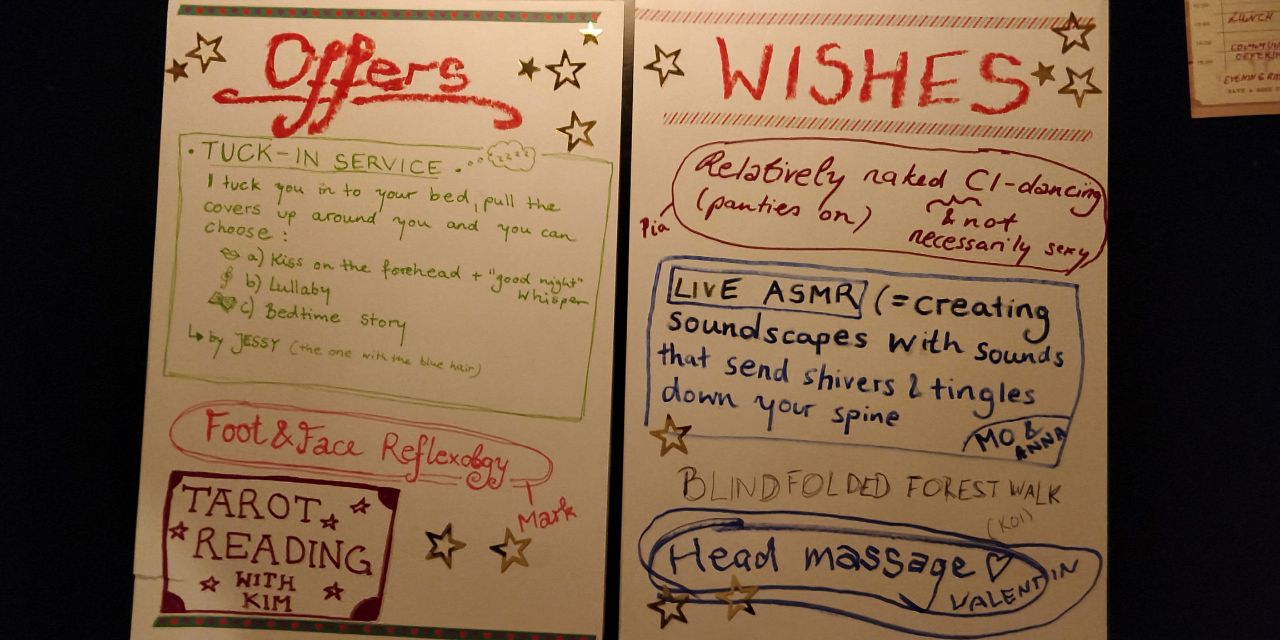 Offers
• TUCK-IN SERVICE
zzzz
I tuck you in to your bed, pull the
covers up around you and you can
choose:
a) Kiss on the forehead + "good night"
whisper
b) Lullaby
c) Bedtime story
↳ by JESSY (the one with the blue hair)
Foot & Face Reflexology
Mark
TAROT
READING
WITH
KIM
WISHES
Relatively naked CI-dancing
(panties on)
& not
necessarily sexy
Pia
LIVE ASMR (= creating
soundscapes with sounds
that send shivers & tingles
down your spine
MO &
ANNA
BLINDFOLDED FOREST WALK
(KOI)
Head massage ♡
VALENTIN
LUNCH
EVENING